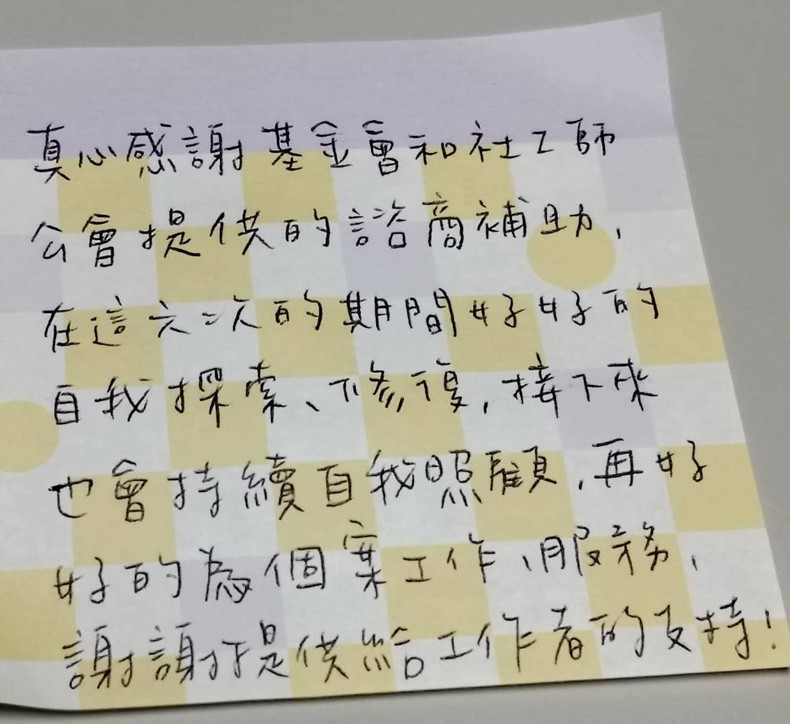 真心感謝基金會和社工師
公會提供的諮商補助,
在這六次的期間好好的
自我探索、修復,接下來
也會持續自我照顧,再好
好的為個案工作、服務,
謝謝提供給工作者的支持!